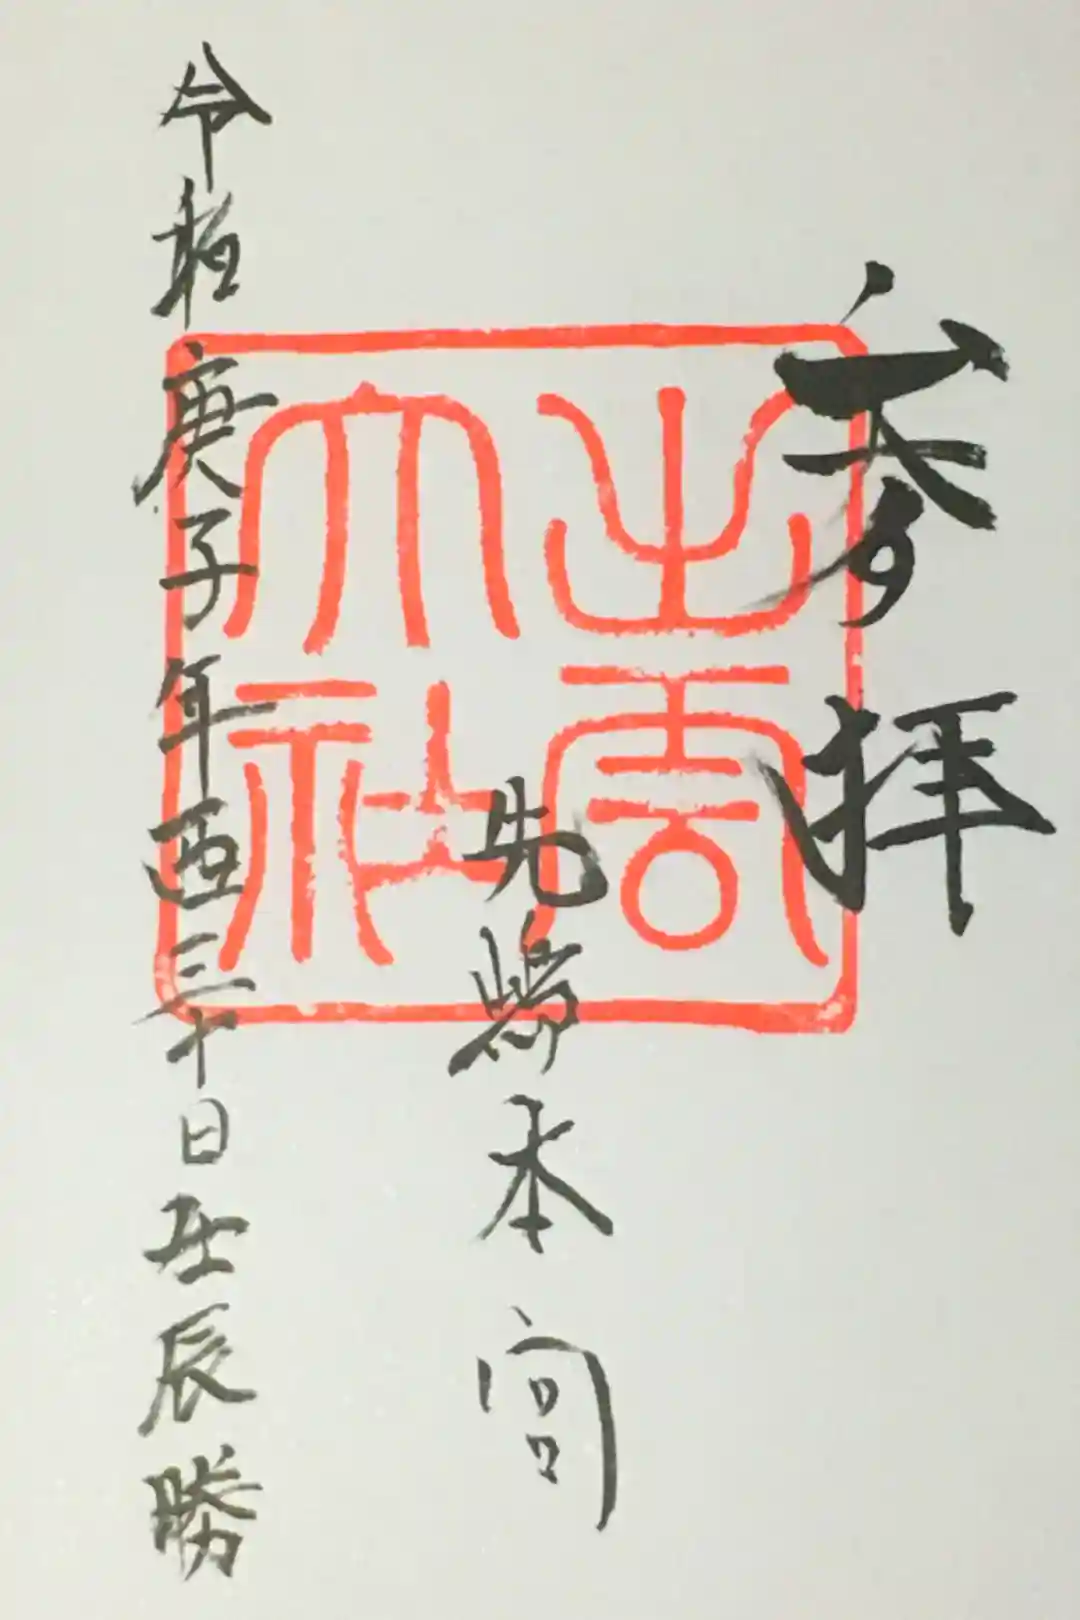 参拝
出雲
大社
先嶋本宮
令和庚子年酉三十日壬辰勝